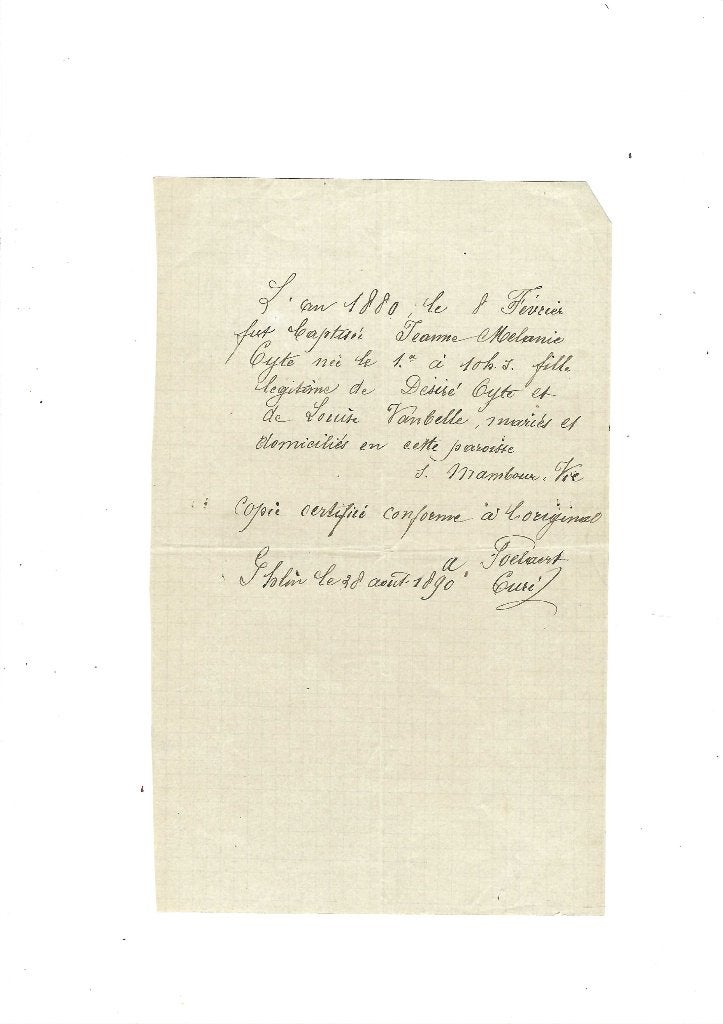 L'an 1880, le 8 Février
fut baptisée Jeanne Mélanie
Cyte née le 1.er à 10h s. fille
légitime de Désiré Cyte et
de Louise Vanbelle, mariés et
domiciliés en cette paroisse
s. Mambour. Vic
Copie certifié conforme à l'original
a Poelaert
Ghlin le 28 août 1890 Curé